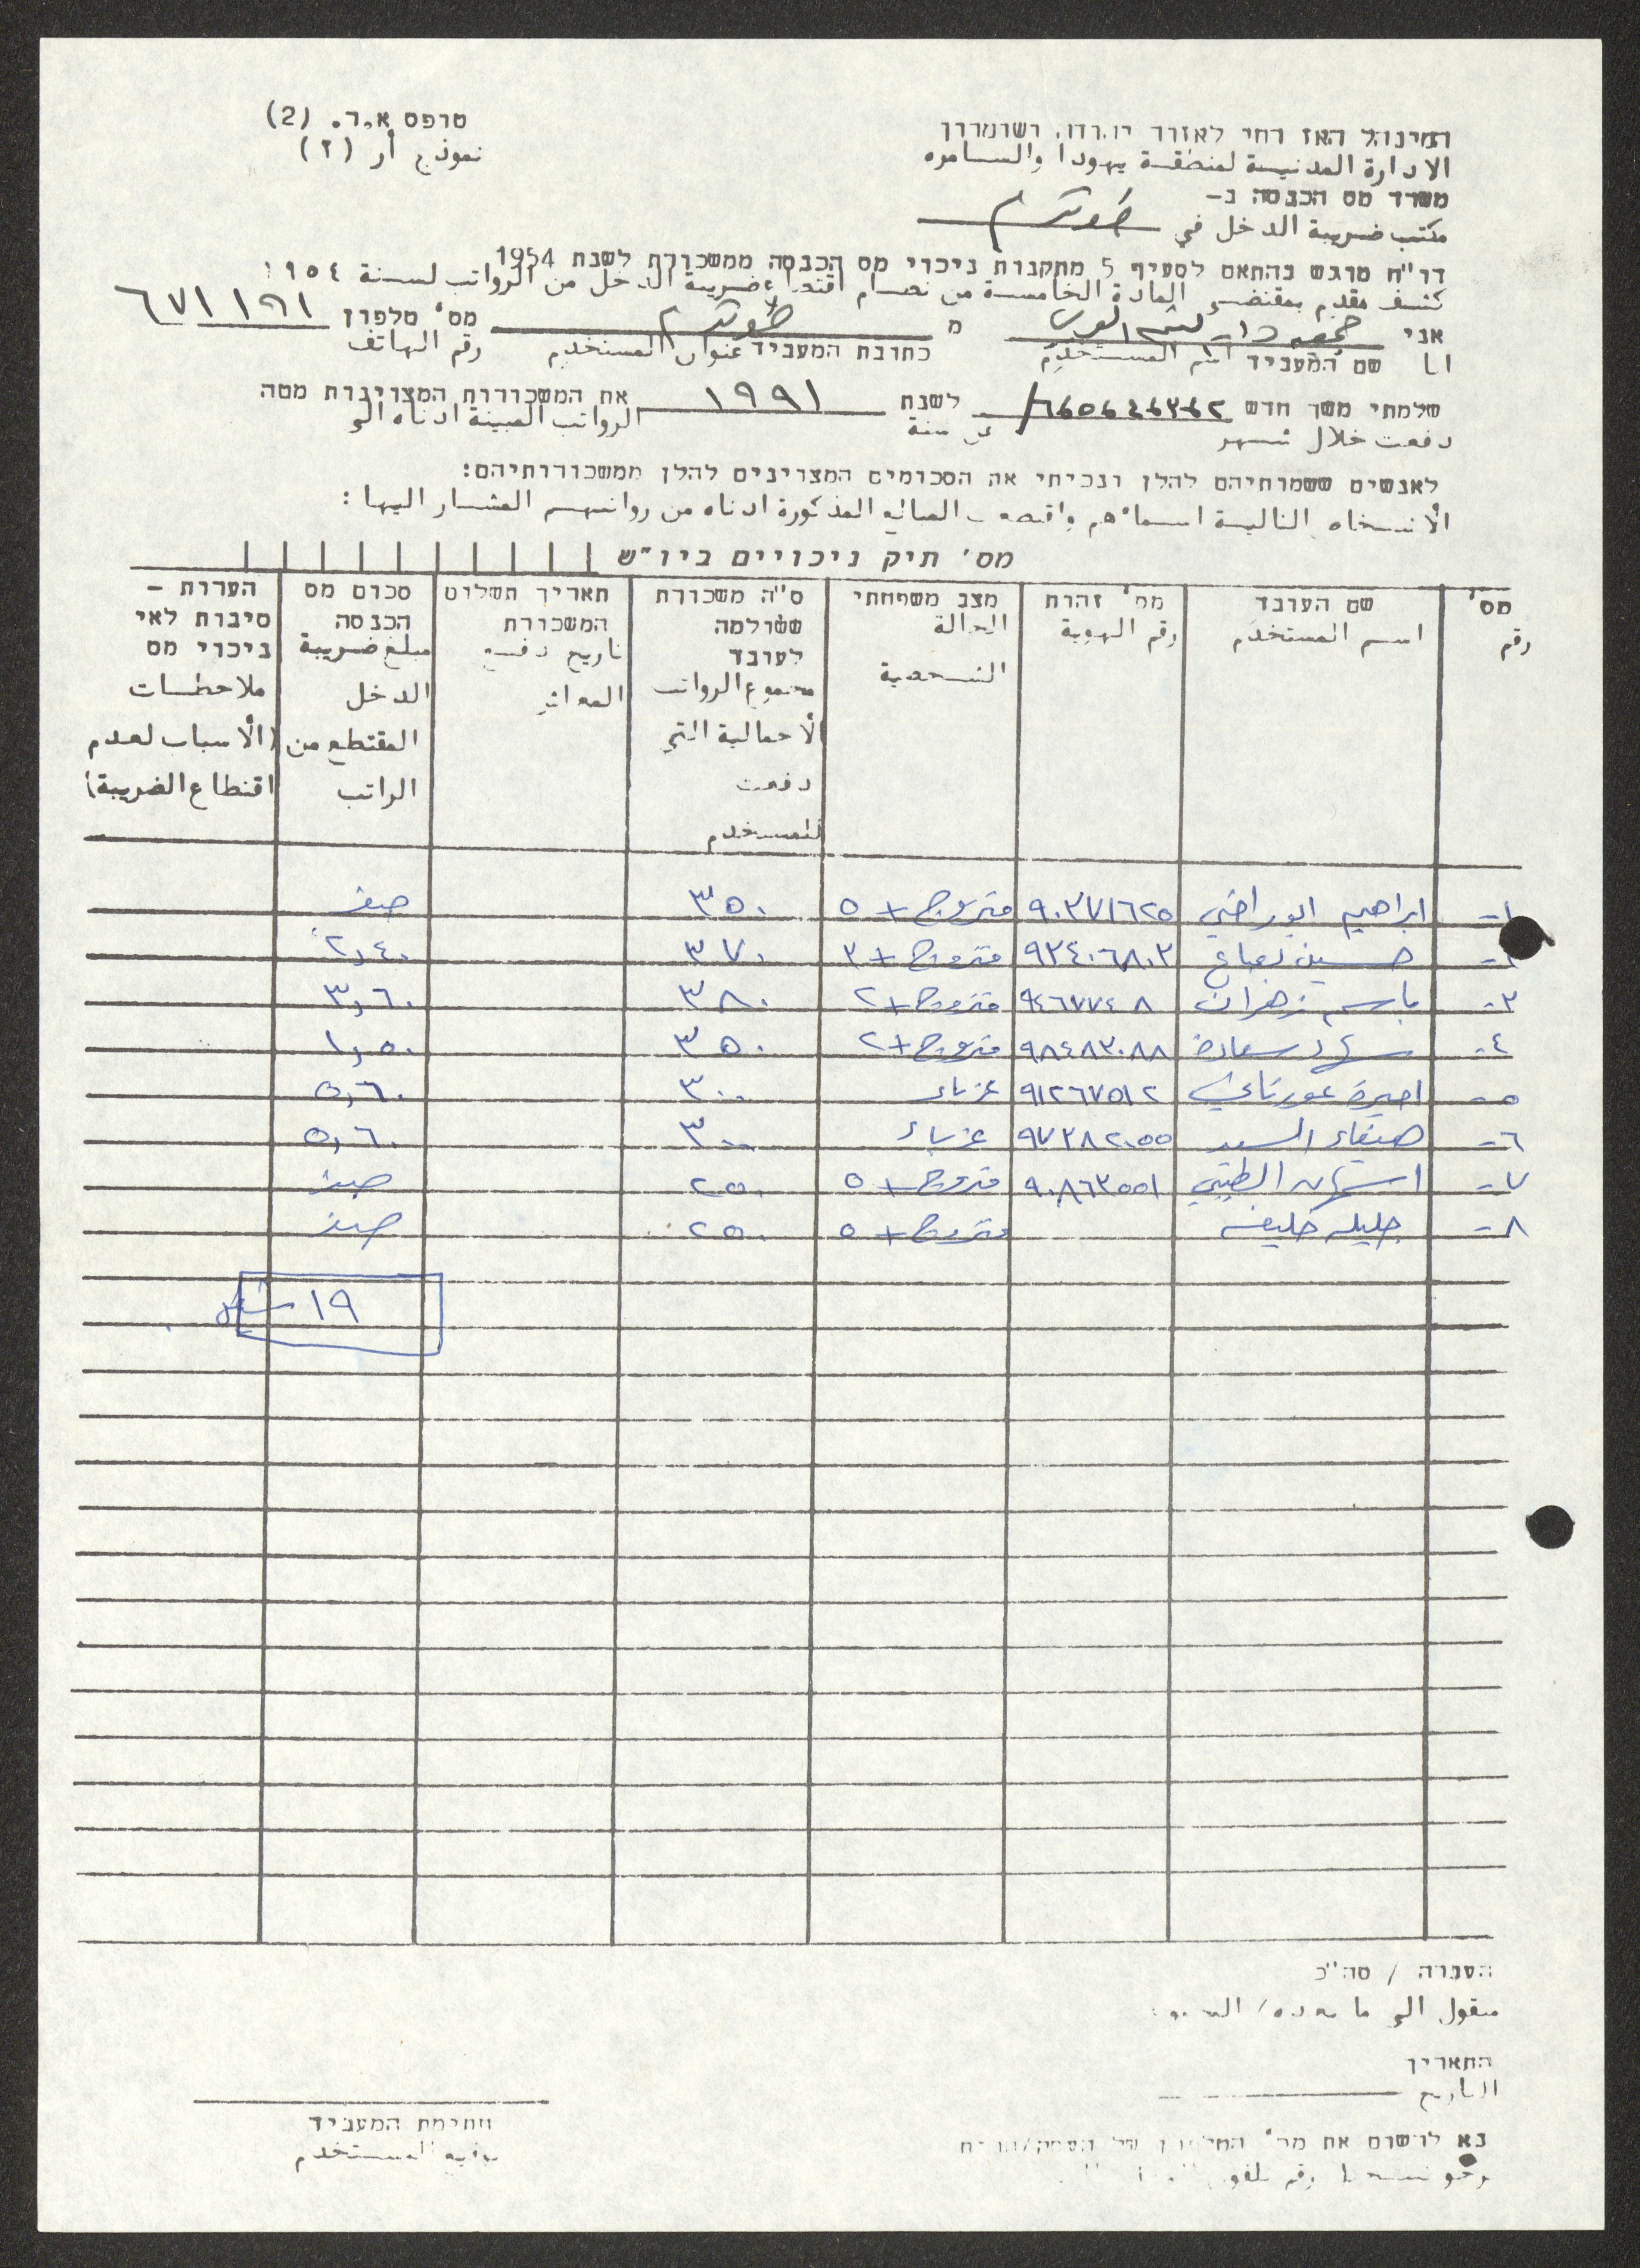 טופס א.ר. (2)
نموذج أر (٢)
המינהל האזרחי לאזור יהודה ושומרון
الادارة المدنية لمنطقة يهودا والسامره
משרד מס הכנסה ב-
مكتب ضريبة الدخل في طولكرم
דו"ח מוגש בהתאם לסעיף 5 מתקנות ניכוי מס הכנסה ממשכורת לשנת 1954
كشف مقدم بمقتضى المادة الخامسة من نظام اقتطاع ضريبة الدخل من الرواتب لسنة ١٩٥٤
אני جمعية دار اليتيم العربي מ طولكرم מס' טלפון ٦٧١١٩١
انا שם המעביד اسم المستخدم כתובת המעביד عنوان المستخدم رقم الهاتف
שלמתי משך חדש ١،٢،٣،٤،٥،٦ לשנת ١٩٩١ את המשכורות המצויינות מטה
دفعت خلال شهر من سنة الرواتب المبينة ادناه الى
לאנשים ששמותיהם להלן ונכיתי את הסכומים המצויינים להלן ממשכורותיהם:
الأشخاص التالية اسماؤهم واقتطعت المبالغ المذكورة ادناه من رواتبهم المشار اليها :
מס' תיק ניכויים ביו"ש
מס' שם העובד מס' זהות מצב משפחתי ס"ה משכורת ששולמה לעובד תאריך תשלום המשכורת סכום מס הכנסה הערות - סיבות לאי ניכוי מס
رقم اسم المستخدم رقم الهوية الحالة الشخصية مجموع الرواتب الأجمالية التي دفعت للمستخدم تاريخ دفع المعاش مبلغ ضريبة الدخل المقتطع من الراتب ملاحظات (الأسباب لعدم اقتطاع الضريبة)
١- ابراهيم ابو راضي ٩٠٣٧١٦٢٥ متزوج + ٥ ٣٥٠ صفر
٢- حسين نعباع ٩٣٤٠٦٨٠٣ متزوج + ٣ ٣٧٠ ٢,٤٠
٣- باسم زهران ٩٤٦٧٧٤٠٨ متزوج + ٢ ٣٨٠ ٣,٦٠
٤- سعادة ٩٨٤٨٣٠٨٨ متزوج + ٢ ٣٥٠ ١,٥٠
٥- اميرة عورتاني ٩١٢٦٧٥١٢ عزباء ٣٠٠ ٥,٦٠
٦- صيفاء السيد ٩٧٣٨٢٠٥٥ عزباء ٣٠٠ ٥,٦٠
٧- الطيبي ٩٠٨٦٣٥٥١ متزوج + ٥ ٢٥٠ صفر
٨- جليله خليفه متزوج + ٥ ٢٥٠ صفر
١٩ شيكل
העברה / סה"כ
منقول الى ما بعده /
התאריך
التاريخ
חתימת המעביד
توقيع المستخدم
נא לרשום את מס' הטלפון של